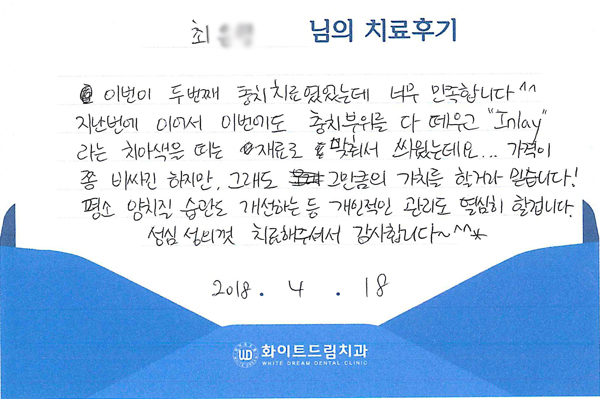 최 님의 치료후기
이번이 두번째 충치치료였었는데 너무 만족합니다^^
지난번에 이어서 이번에도 충치부위를 다 떼우고 "Inlay"
라는 치아색을 띠는 재료로 맞춰서 씌웠는데요... 가격이
쫌 비사긴 하지만, 그래도 그만큼의 가치를 할거라 믿습니다!
평소 양치질 습관도 개선하는 등 개인적인 관리도 열심히 할겁니다.
성심 성의껏 치료해주셔서 감사합니다~^^*
2018 . 4 . 18
WD 화이트드림치과
WHITE DREAM DENTAL CLINIC